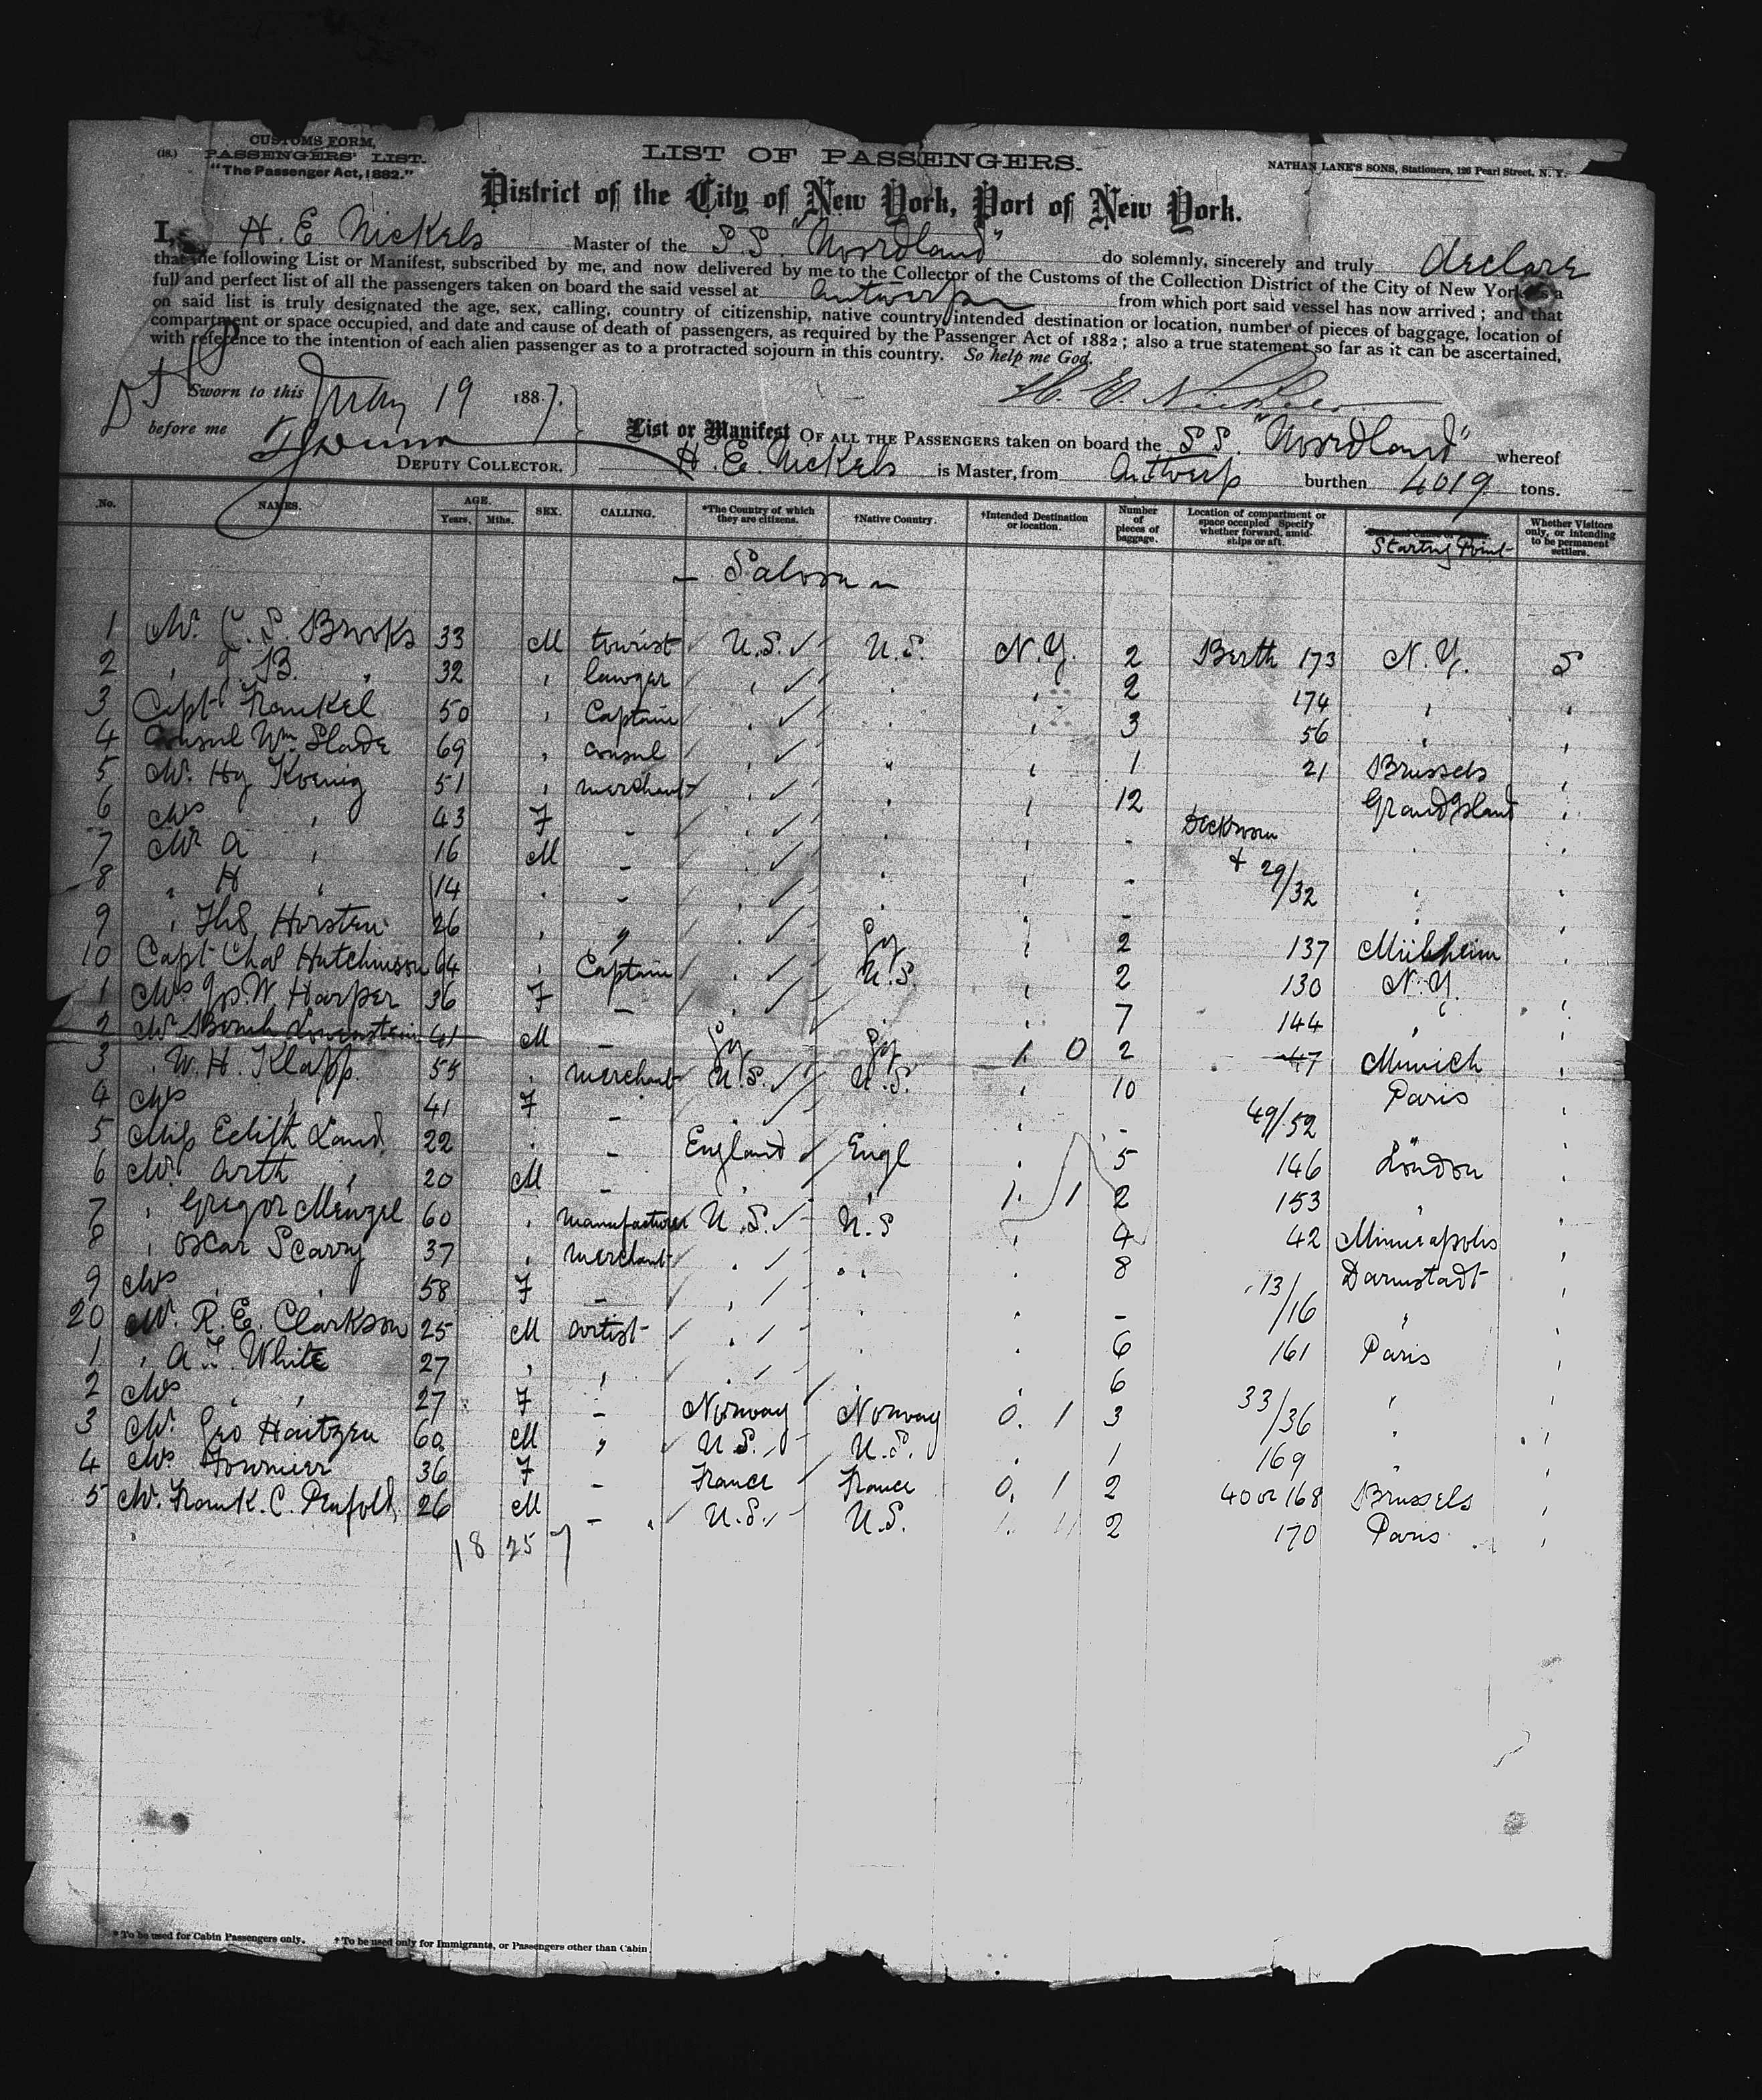 (18.) CUSTOMS FORM,
PASSENGERS' LIST.
"The Passenger Act, 1882."
LIST OF PASSENGERS.
NATHAN LANE'S SONS, Stationers, 126 Pearl Street, N. Y.
District of the City of New York, Port of New York.
I, H. E Nickels Master of the S S. "Noordland" do solemnly, sincerely and truly declare
that the following List or Manifest, subscribed by me, and now delivered by me to the Collector of the Customs of the Collection District of the City of New York is a
full and perfect list of all the passengers taken on board the said vessel at Antwerp from which port said vessel has now arrived; and that
on said list is truly designated the age, sex, calling, country of citizenship, native country, intended destination or location, number of pieces of baggage, location of
compartment or space occupied, and date and cause of death of passengers, as required by the Passenger Act of 1882; also a true statement so far as it can be ascertained,
with reference to the intention of each alien passenger as to a protracted sojourn in this country. So help me God.
Sworn to this 19 1887. H. E. Nickels
before me
DEPUTY COLLECTOR.
List or Manifest OF ALL THE PASSENGERS taken on board the S S. "Noordland" whereof
H. E. Nickels is Master, from Antwerp burthen 4019 tons.
No. NAMES. AGE. Years. Mths. SEX. CALLING. *The Country of which they are citizens. †Native Country. †Intended Destination or location. Number of pieces of baggage. Location of compartment or space occupied. Specify whether forward, amidships or aft. Starting Point Whether Visitors only, or intending to be permanent settlers.
- Saloon -
1 Mr. C. S. Brooks 33 M tourist U.S. U.S. N.Y. 2 Berth 173 N.Y. S
2 " T. B. " 32 " lawyer " " " 2 174 " "
3 Capt Frankel 50 " Captain " " " 3 56 " "
4 Consul Wm Slade 69 " consul " " " 1 21 Brussels "
5 Mr. Hy Koenig 51 " merchant " " " 12 Grand Island "
6 Mrs " 43 F - " " " - Deckroom " "
7 Mr A " 16 M - " " " - & 29/32 " "
8 " H " 14 " - " " " - " "
9 " Ths. Horsten 26 " " " Gy " 2 137 Mülheim "
10 Capt Chas Hutchinson 64 " Captain " U.S. " 2 130 N.Y. "
1 Mrs Jos. W. Harper 36 F - " " " 7 144 " "
2 Mr 41 M - Gy Gy 1. 0 2 47 Munich "
3 " W. H. Klapp. 55 " Merchant U.S. U.S. " 10 Paris "
4 Mrs " 41 F - " " " - 49/52 " "
5 Miss Edith Land 22 " - England Engl " 5 146 London "
6 Mr. Arth " 20 M - " " 1. 1 2 153 " "
7 " Gregor Menzel 60 " manufacturer U.S. U.S " 4 42 Minneapolis "
8 " Oscar Scarry 37 " merchant " " " 8 Darmstadt "
9 Mrs " 58 F - " " " - 13/16 " "
20 Mr. R. E. Clarkson 25 M artist " " " 6 161 Paris "
1 " A. T. White 27 " " " " " 6 " "
2 Mrs " " 27 F - Norway Norway 0. 1 3 33/36 " "
3 Mr. Geo 60 M " U.S. U.S. " 1 169 " "
4 Mrs Fournier 36 F - France France 0. 1 2 40 or 168 Brussels "
5 Mr. Frank. C. Penfold 26 M - U.S. U.S. 2 170 Paris "
18 25 7
* To be used for Cabin Passengers only. † To be used only for Immigrants, or Passengers other than Cabin